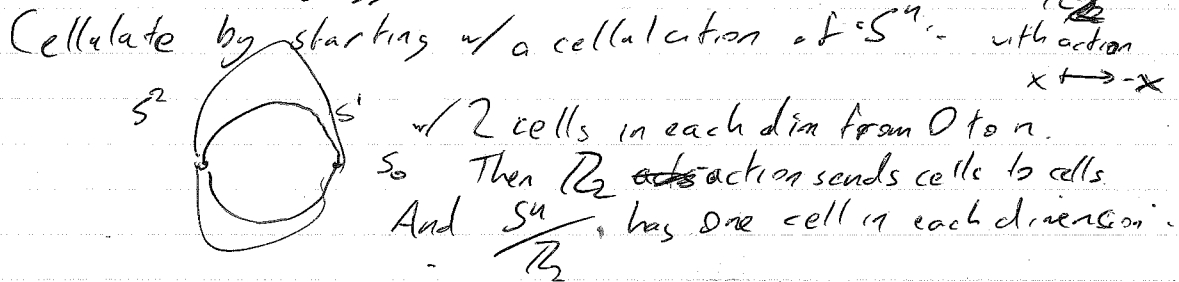 Cellulate by starting w/ a cellulation of S^n with action
x ↦ -x
S^2 S^1 w/ 2 cells in each dim from 0 to n.
S_0 Then Z_2 action sends cells to cells.
And S^n/Z_2 has one cell in each dimension.